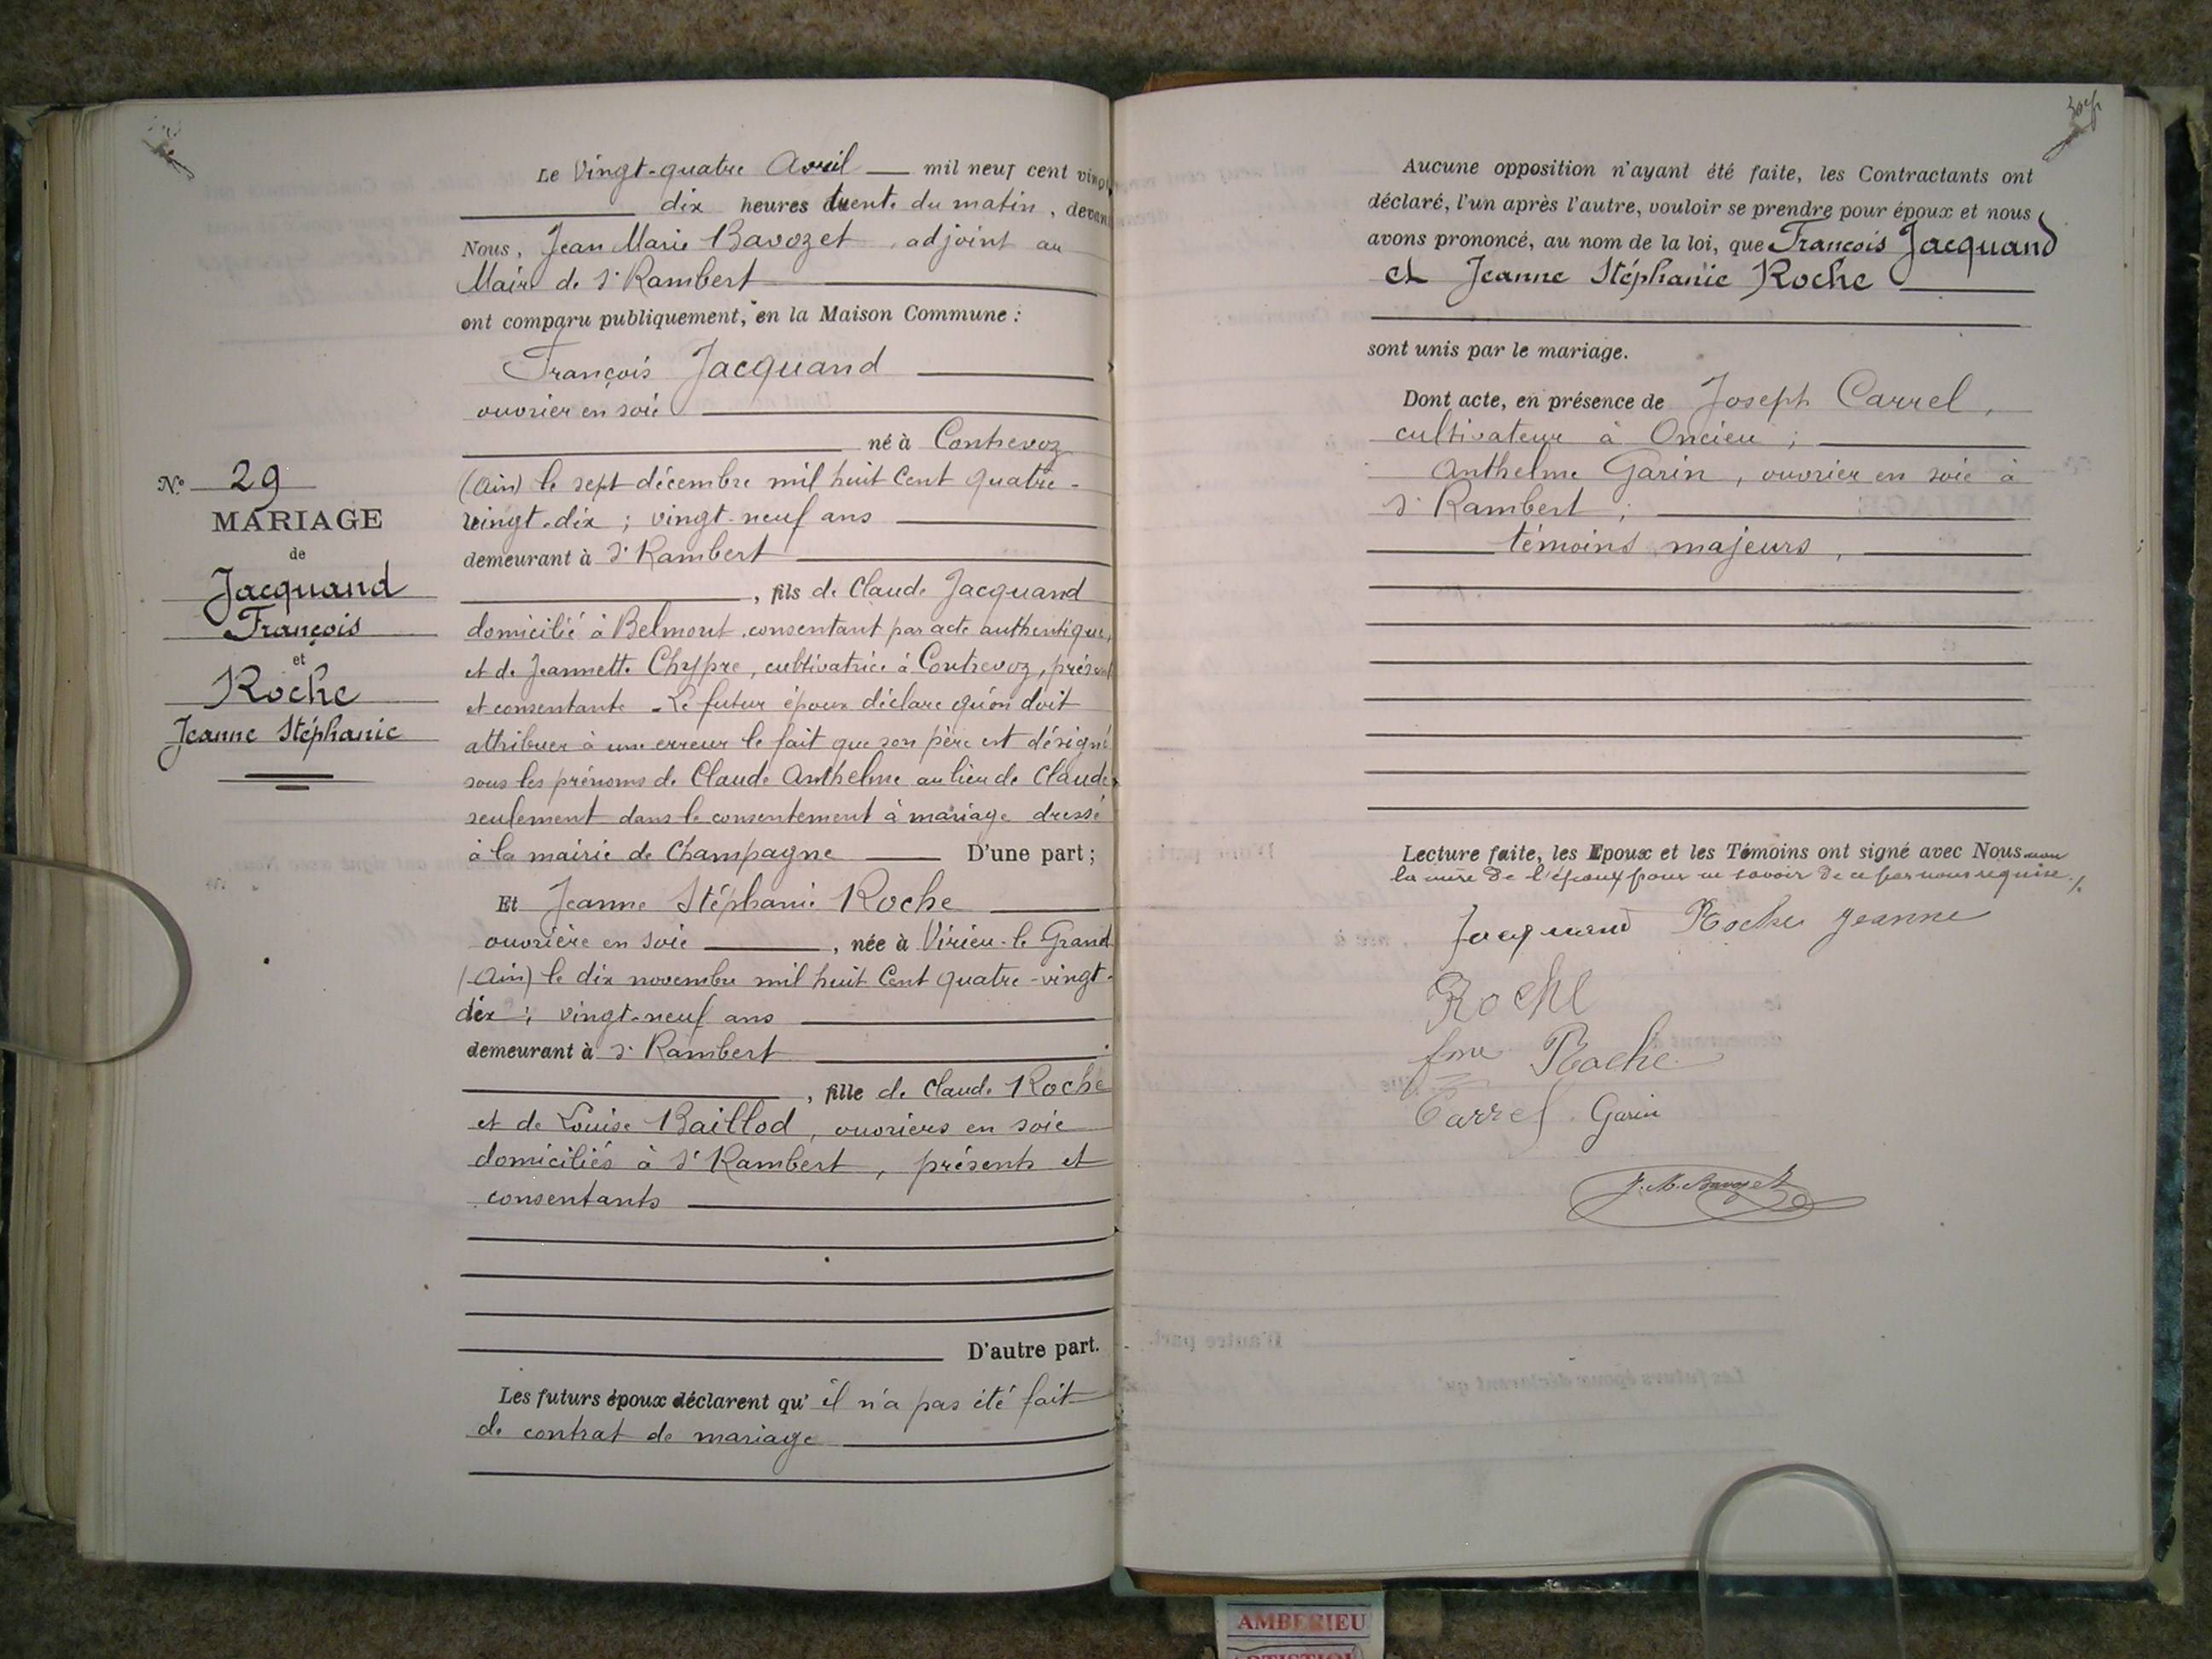 Le Vingt-quatre Avril — mil neuf cent vingt
dix heures trente du matin, devant
Nous, Jean Marie Bavozet, adjoint au
Maire de St Rambert
ont comparu publiquement, en la Maison Commune :
François Jacquand
ouvrier en soie
né à Contrevoz
(Ain) le sept décembre mil huit Cent quatre-
vingt-dix ; vingt-neuf ans
demeurant à St Rambert
, fils de Claude Jacquand
domicilié à Belmont, consentant par acte authentique,
et de Jeannette Chypre, cultivatrice à Contrevoz, présente
et consentante. Le futur époux déclare qu'on doit
attribuer à une erreur le fait que son père est désigné
sous les prénoms de Claude Anthelme au lieu de Claude
seulement dans le consentement à mariage dressé
à la mairie de Champagne — D'une part ;
Et Jeanne Stéphanie Roche
ouvrière en soie —, née à Virieu-le Grand
(Ain) le dix novembre mil huit Cent quatre-vingt-
dix ; vingt-neuf ans
demeurant à St Rambert
, fille de Claude Roche
et de Louise Baillod, ouvriers en soie
domiciliés à St Rambert, présents et
consentants
D'autre part.
Les futurs époux déclarent qu'il n'a pas été fait
de contrat de mariage
N° 29
MARIAGE
de
Jacquand
François
et
Roche
Jeanne Stéphanie
Aucune opposition n'ayant été faite, les Contractants ont
déclaré, l'un après l'autre, vouloir se prendre pour époux et nous
avons prononcé, au nom de la loi, que François Jacquand
et Jeanne Stéphanie Roche
sont unis par le mariage.
Dont acte, en présence de Joseph Carrel,
cultivateur à Oncieu ;
Anthelme Garin, ouvrier en soie à
St Rambert ;
témoins majeurs,
Lecture faite, les Epoux et les Témoins ont signé avec Nous non
la mère de l'époux pour ne savoir de ce par nous requise
Jacquand Roche Jeanne
Roche
fme Roche
Carrel Garin
J. M. Bavozet
AMBERIEU